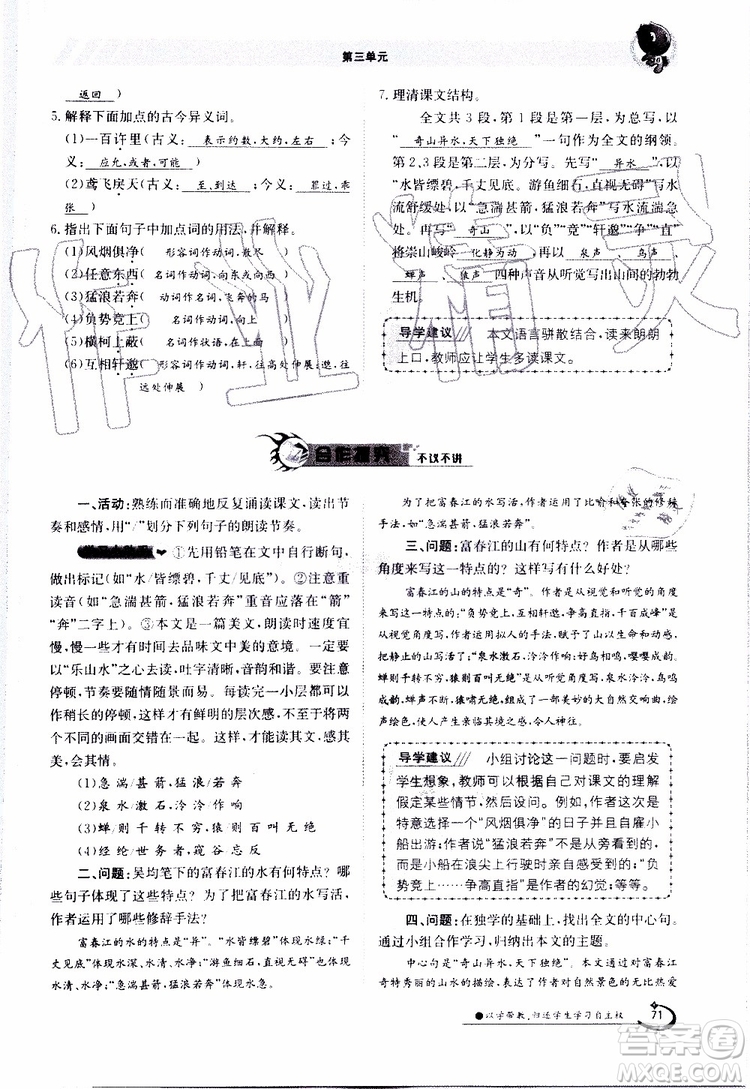 第三单元
返回 )
5. 解释下面加点的古今异义词。
(1)一百许里(古义: 表示约数,大约,左右 ;今
义: 应允,或者,可能 )
(2)鸢飞戾天(古义: 至,到达 ;今义: 罪过,乖
张 )
6. 指出下面句子中加点词的用法,并解释。
(1)风烟俱净( 形容词作动词,散尽 )
(2)任意东西( 名词作动词,向东或向西 )
(3)猛浪若奔( 动词作名词,飞奔的马 )
(4)负势竞上( 名词作动词,向上 )
(5)横柯上蔽( 名词作状语,在上面 )
(6)互相轩邈( 形容词作动词,轩,往高处伸展;邈,往
远处伸展 )
7. 理清课文结构。
全文共 3 段,第 1 段是第一层,为总写,以
“ 奇山异水,天下独绝 ”一句作为全文的纲领。
第 2、3 段是第二层,为分写。先写“ 异水 ”,以
“水皆缥碧,千丈见底。游鱼细石,直视无碍”写水
流舒缓处,以“急湍甚箭,猛浪若奔”写水流湍急
处。再写“ 奇山 ”,以“负”“竞”“轩邈”“争”“直”
将崇山峻岭 化静为动 ,再以 泉声 、 鸟声 、
蝉声 、 猿声 四种声音从听觉写出山间的勃勃
生机。
导学建议 本文语言骈散结合,读来朗朗
上口,教师应让学生多读课文。
合作探究 不议不讲
一、活动:熟练而准确地反复诵读课文,读出节
奏和感情,用“/”划分下列句子的朗读节奏。
①先用铅笔在文中自行断句,
做出标记(如“水/皆缥碧,千丈/见底”)。②注意重
读音(如“急湍甚箭,猛浪若奔”重音应落在“箭”
“奔”二字上)。③本文是一篇美文,朗读时速度宜
慢,慢一些才有时间去品味文中美的意境。一定要
以“乐山水”之心去读,吐字清晰,音韵和谐。要有
停顿,使情随声走,情随景走。可以在每一小层都
作稍长的停顿,这样才有鲜明的层次感,不至于将两
个不同的画面交错在一起。这样,才能读其文,入其
美,会其情。
(1)急湍/甚箭,猛浪/若奔
(2)泉水/激石,泠泠/作响
(3)蝉/则千转不穷,猿/则百叫无绝
(4)经纶/世务者,窥谷/忘反
二、问题:吴均笔下的富春江的水有何特点?哪
些句子体现了这些特点?为了把富春江的水写活,
作者运用了哪些修辞手法?
富春江的水的特点是“异”。“水皆缥碧”体现水绿;“千
丈见底”体现水深;“游鱼细石,直视无碍”体现水清;“急湍
甚箭,猛浪若奔”体现水急。
为了把富春江的水写活,作者运用了比喻和夸张的修辞
手法,如“急湍甚箭,猛浪若奔”。
三、问题:富春江的山有何特点?作者是从哪些
角度来写这一特点的?这样写有什么好处?
富春江的山的特点是“奇”。“负势竞上,互相轩邈,争高直指,千百成峰”是
从视觉角度写,作者运用拟人的手法,赋予山以生命和动感,
把静止的山写活;“泉水激石,泠泠作响。好鸟相鸣,嘤嘤成韵。
蝉则千转不穷,猿则百叫无绝”从听觉角度写,泉水泠泠,鸟鸣
成韵,蝉声不断,猿啸无绝,组成了一部美妙的大自然交响乐,
绘声绘色,使人产生亲临其境之感。
导学建议 小组讨论这一问题时,要启发
学生想象,教师可以根据自己对课文的理解
假定某些情节,然后提问。例如,作者这次
特意挑选一个“风烟俱净”的日子并以小
船出游;作者对“猛浪若奔”深有所感,是
而是在小船在浪尖上行驶时亲自感受到的;“负
势竞上……争高直指”是作者的幻觉;等等。
四、问题:在独学的基础上,找出全文的中心句。
通过小组合作学习,归纳出本文的主题。
中心句是“奇山异水,天下独绝”。本文通过对富春江
奇特秀丽的山水的描绘,表达了作者对自然景色的无比热爱
以学带教,归还学生学习自主权
71
作业精灵
答案圈